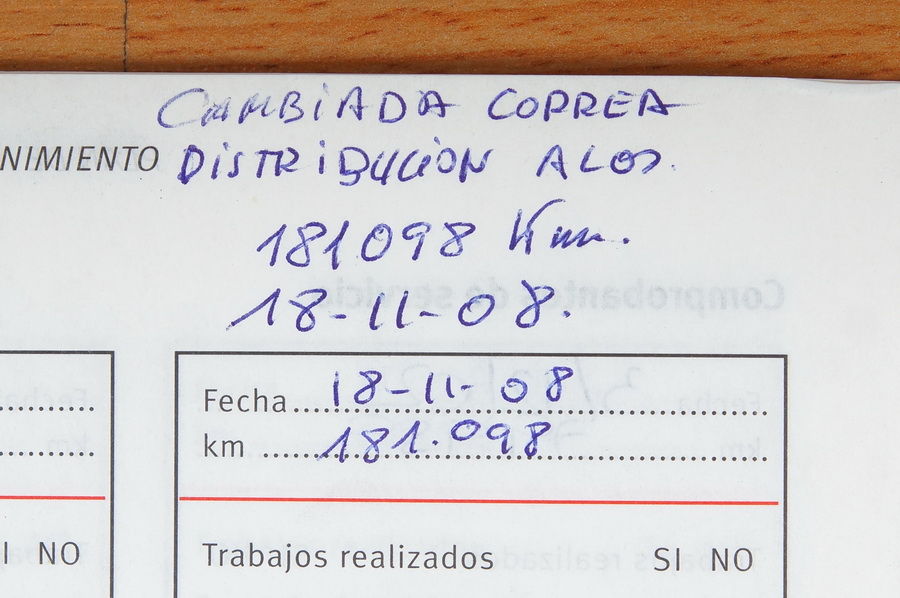 CAMBIADA CORREA
NIMIENTO DiSTRiBUCiON A LOS.
181098 Km.
18-11-08.
Fecha 18-11-08
km 181.098
I NO
Trabajos realizados SI NO
Comprobantes de servicio